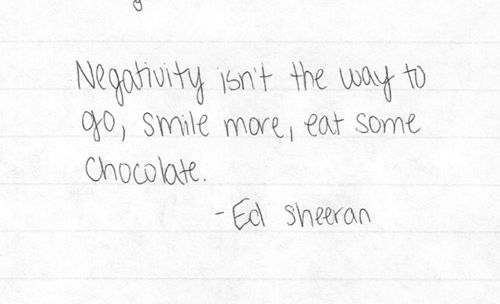 Negativity isn't the way to
go, smile more, eat some
chocolate.
-Ed Sheeran